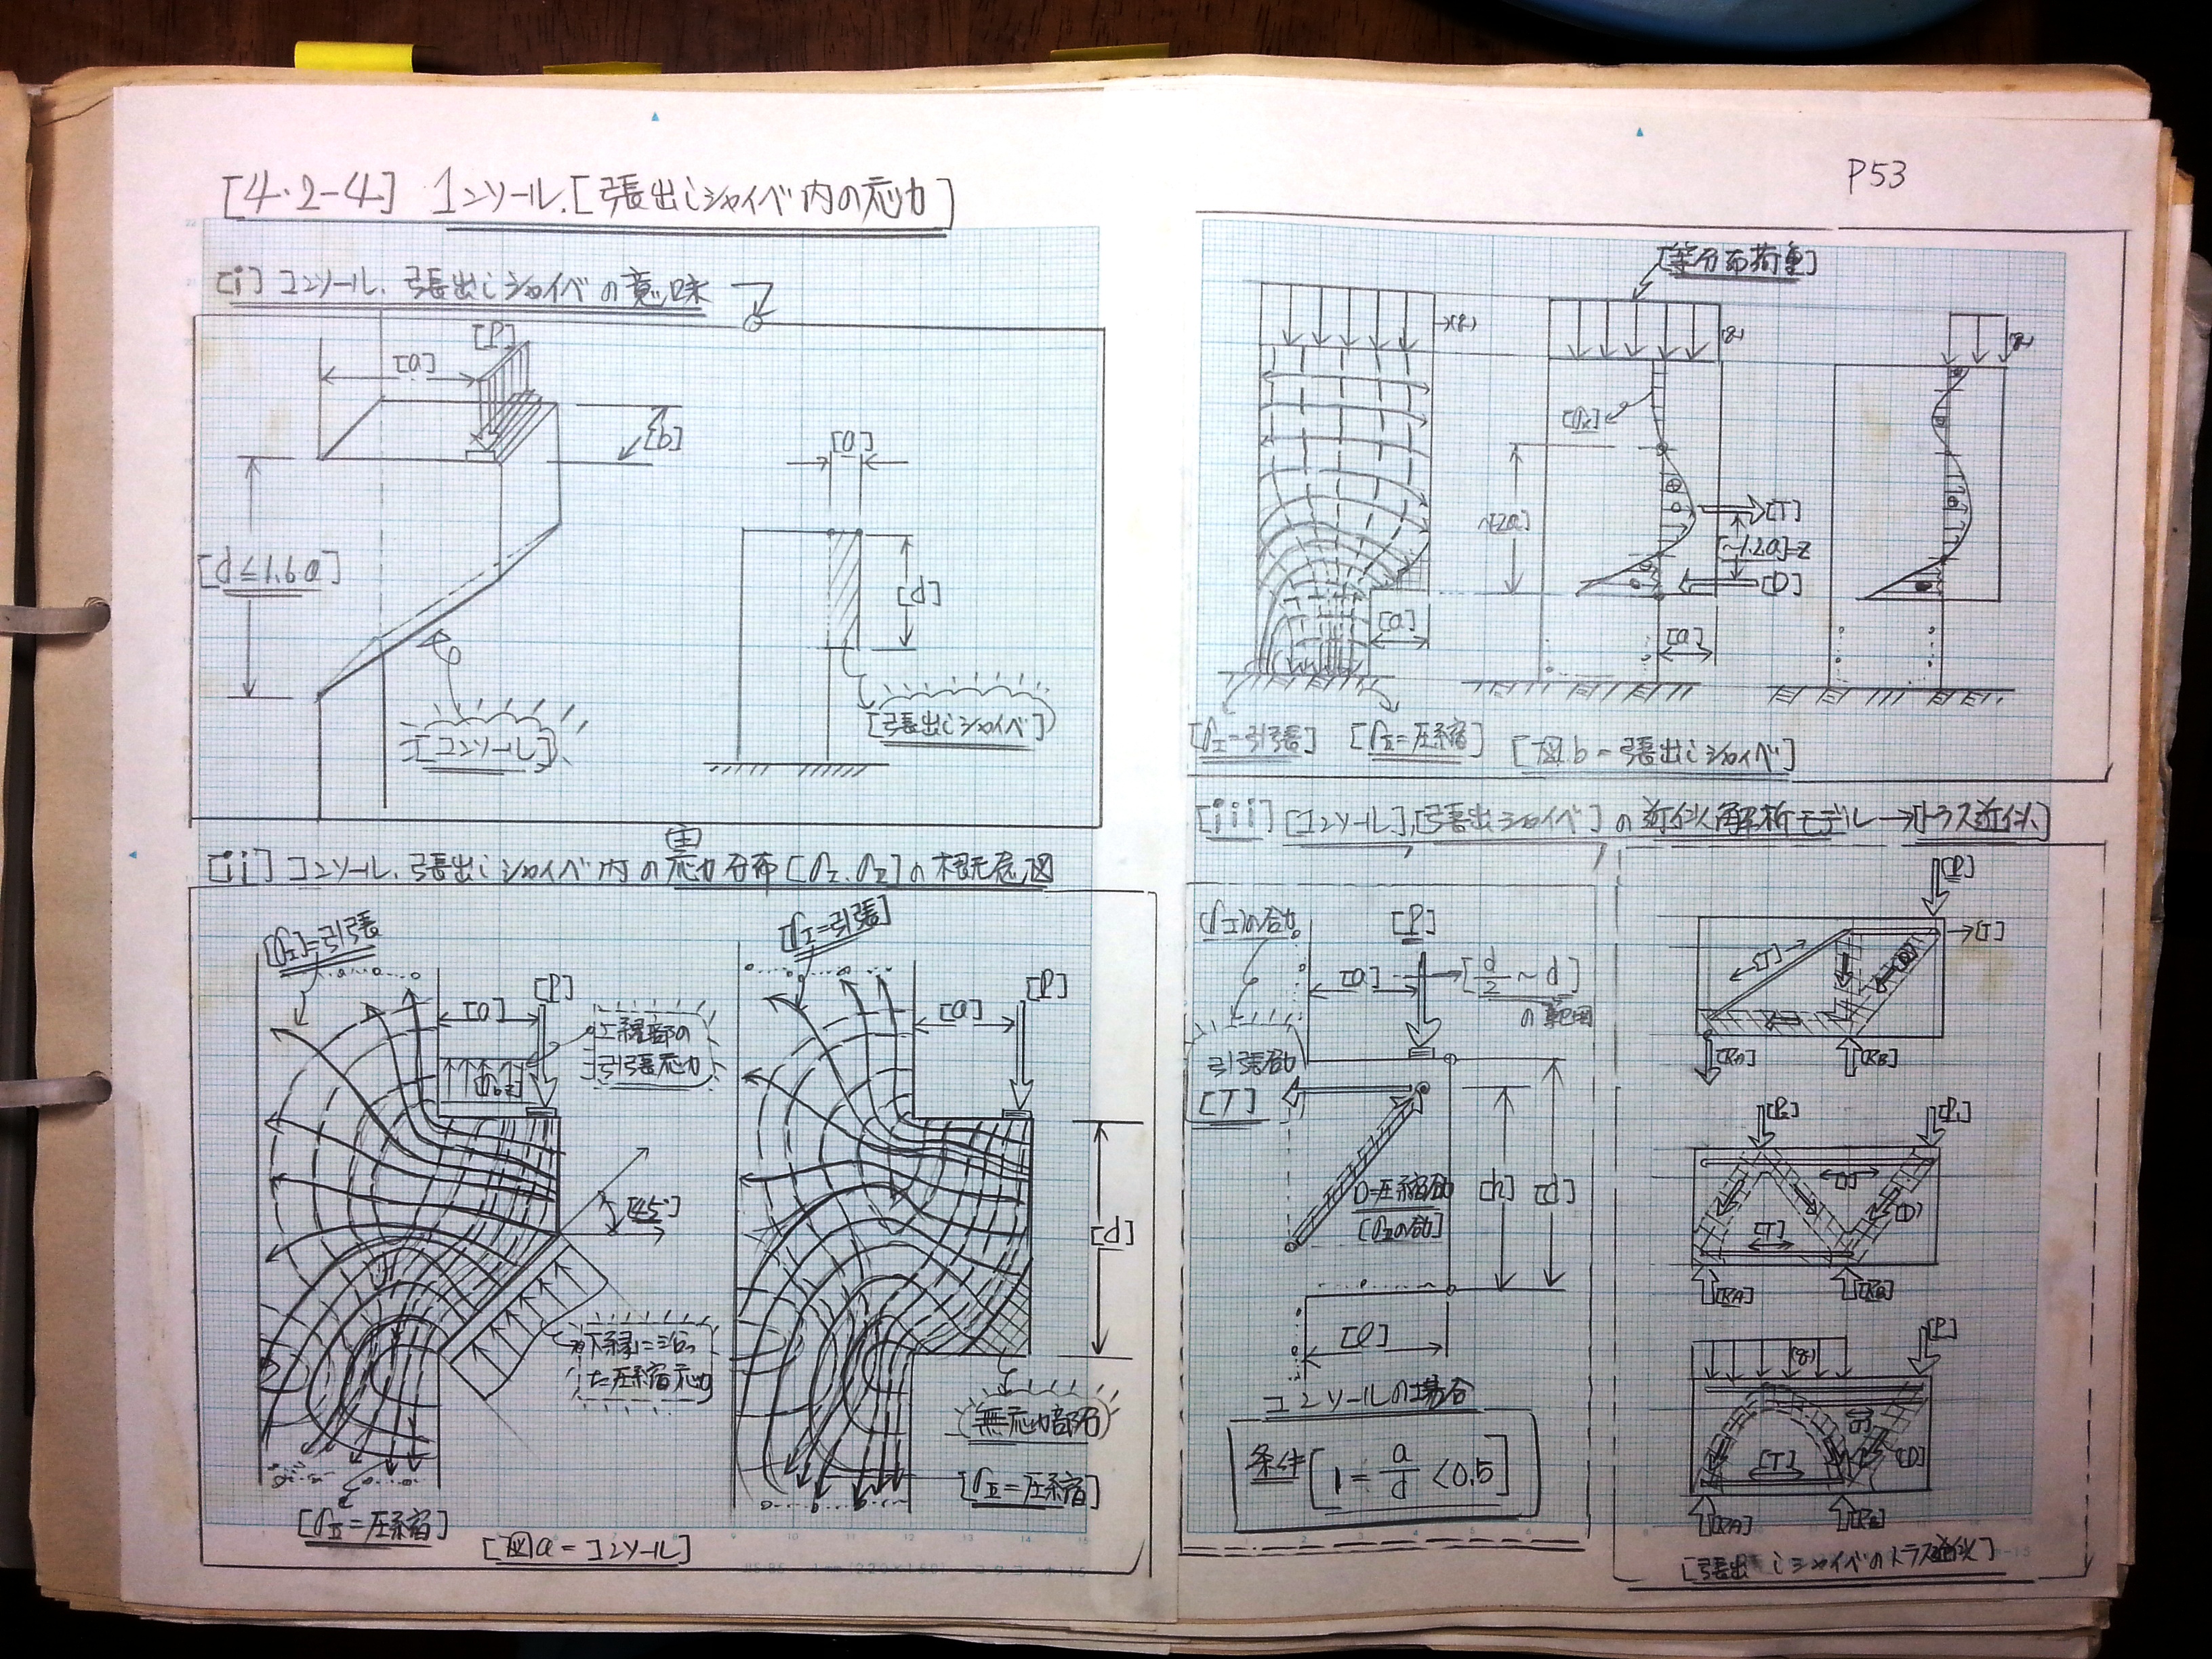 [4·2-4] コンソール.[張出しシャイベ内の応力]
P53
[i] コンソール. 張出しシャイベの意味
[P]
[a]
[b]
[d≦1.6a]
[コンソール]
[a]
[d]
[張出しシャイベ]
[ii] コンソール. 張出しシャイベ内の主応力分布[σI.σII]の概念図
[σI]=引張
[a]
[P]
上縁部の
引張応力
[45°]
下縁に沿っ
た圧縮応力
[σII=圧縮]
[図a-コンソール]
[σI=引張]
[a]
[P]
[d]
[無応力部分]
[σII=圧縮]
[等分布荷重]
(q)
(q)
(q)
[σx]
~[2a]
[T]
[~1.2a]=z
[D]
[a]
[a]
[σI=引張]
[σII=圧縮]
[図.b-張出しシャイベ]
[iii] [コンソール],[張出シャイベ]の近似解析モデル→[トラス近似]
(σI)の合力
[P]
[a]
[d/2 ~ d]
の範囲
引張合力
[T]
D=圧縮合力
[σIIの合力]
[h]
[d]
[l]
コンソールの場合
条件 [1= a/d <0.5]
[P]
[T]
→[T]
[D]
[RA]
[RB]
[P2]
[P1]
[T]
[T]
[D]
[RA]
[RB]
[P]
(q)
[T]
[T]
[D]
[RA]
[RB]
[張出しシャイベのトラス近似]